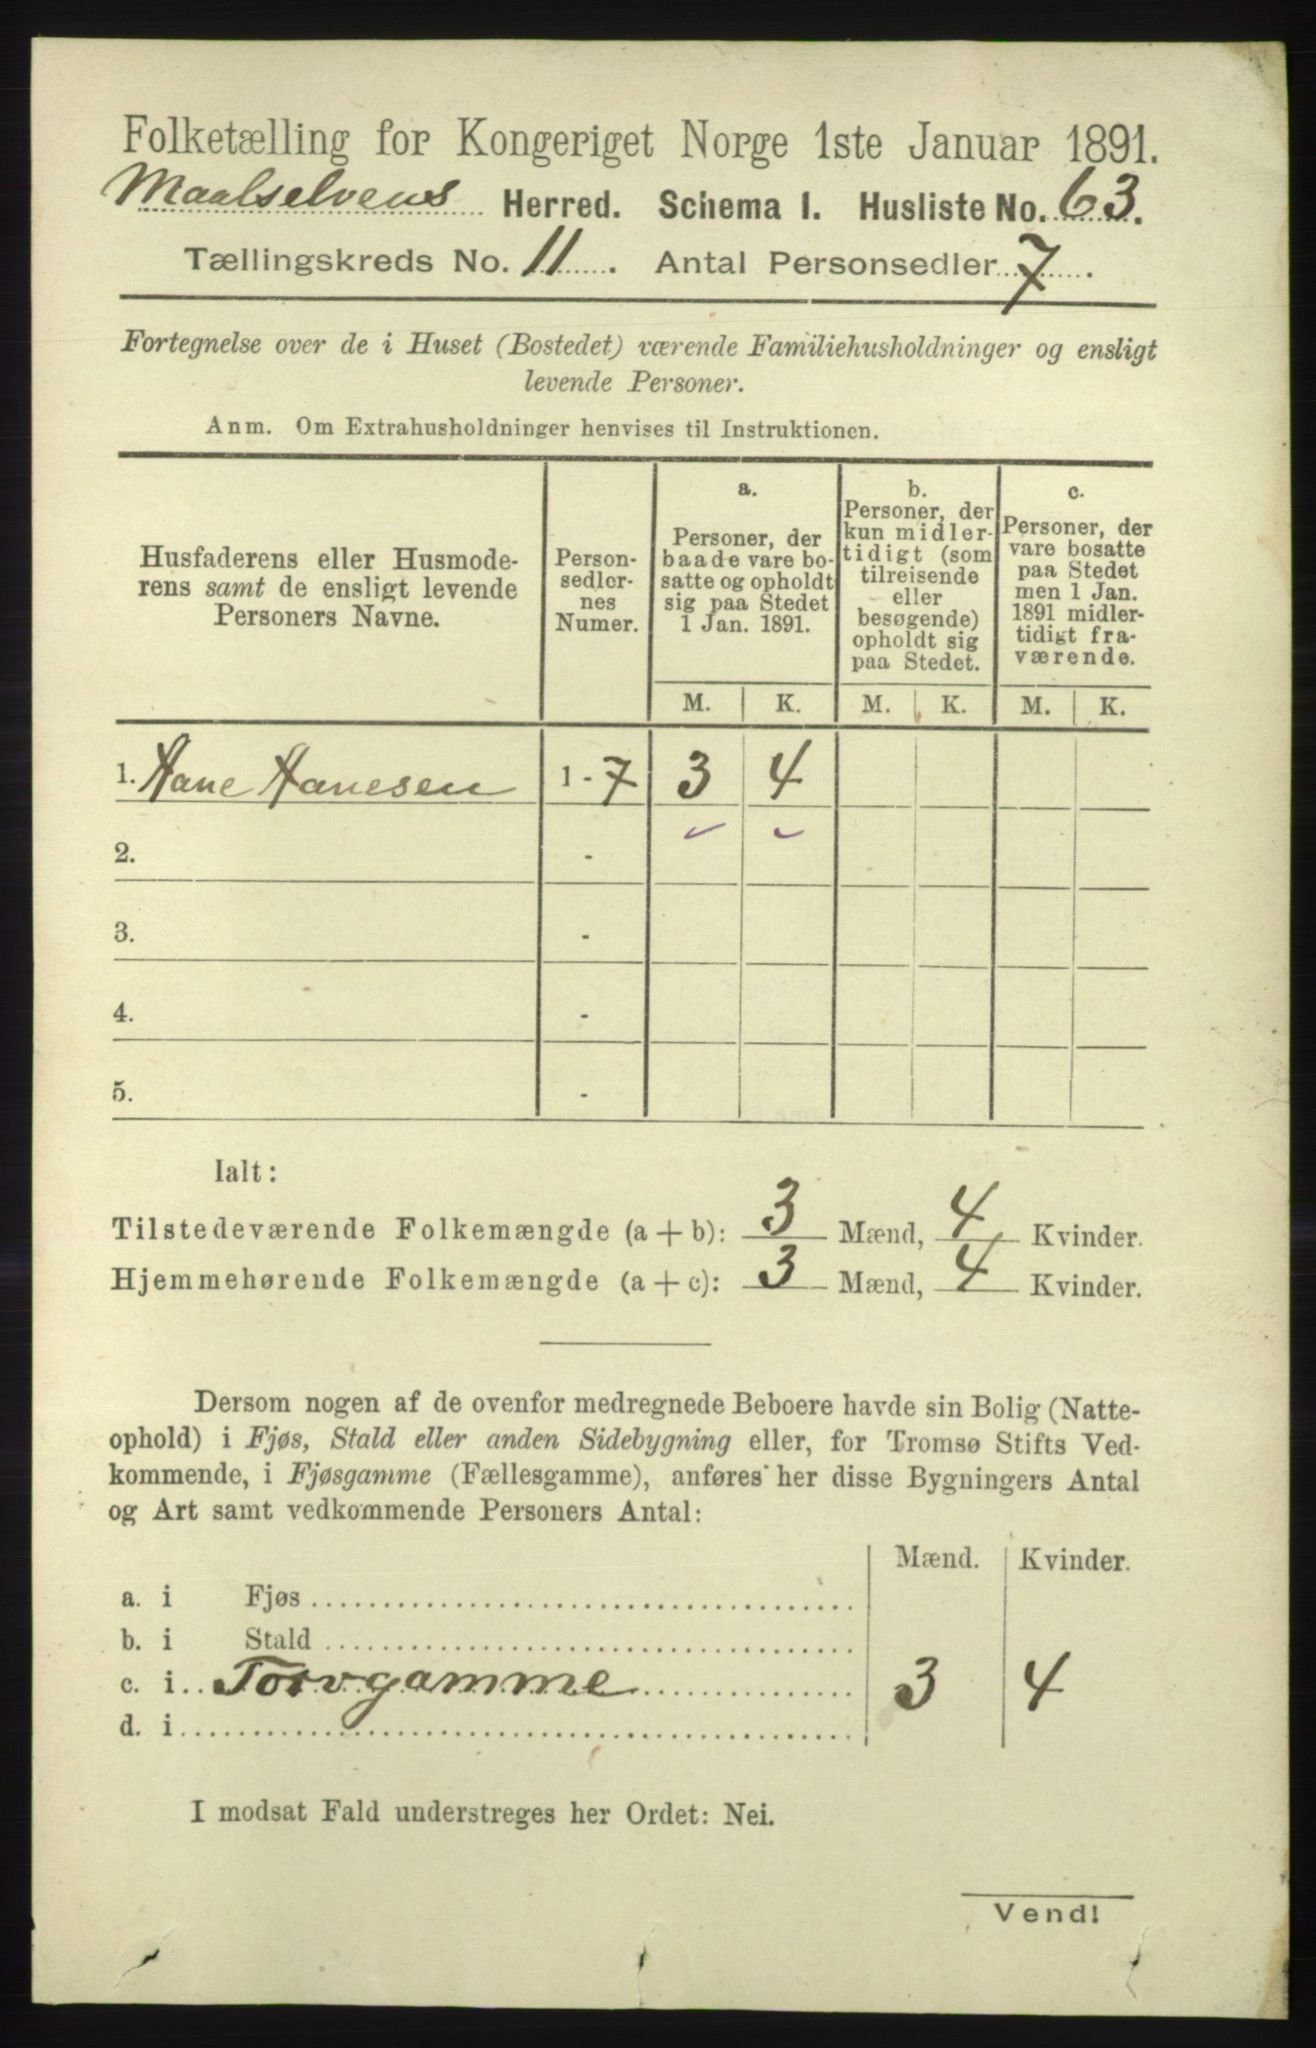 Folketælling for Kongeriget Norge 1ste Januar 1891.
Maalselvens Herred. Schema I. Husliste No. 63.
Tællingskreds No. 11. Antal Personsedler 7.
Fortegnelse over de i Huset (Bostedet) værende Familiehusholdninger og ensligt
levende Personer.
Anm. Om Extrahusholdninger henvises til Instruktionen.
Husfaderens eller Husmode-
rens samt de ensligt levende
Personers Navne.
Person-
sedler-
nes
Numer.
a.
Personer, der
baade vare bo-
satte og opholdt
sig paa Stedet
1 Jan. 1891.
b.
Personer, der
kun midler-
tidigt (som
tilreisende
eller
besøgende)
opholdt sig
paa Stedet.
c.
Personer, der
vare bosatte
paa Stedet
men 1 Jan.
1891 midler-
tidigt fra-
værende.
M. K. M. K. M. K.
1. Aane Aanesen 1 - 7 3 4
2. -
3. -
4. -
5. -
Ialt:
Tilstedeværende Folkemængde (a + b): 3 Mænd, 4 Kvinder.
Hjemmehørende Folkemængde (a + c): 3 Mænd, 4 Kvinder.
Dersom nogen af de ovenfor medregnede Beboere havde sin Bolig (Natte-
ophold) i Fjøs, Stald eller anden Sidebygning eller, for Tromsø Stifts Ved-
kommende, i Fjøsgamme (Fællesgamme), anføres her disse Bygningers Antal
og Art samt vedkommende Personers Antal:
Mænd. Kvinder.
a. i Fjøs
b. i Stald
c. i Torvgamme 3 4
d. i
I modsat Fald understreges her Ordet: Nei.
Vend!